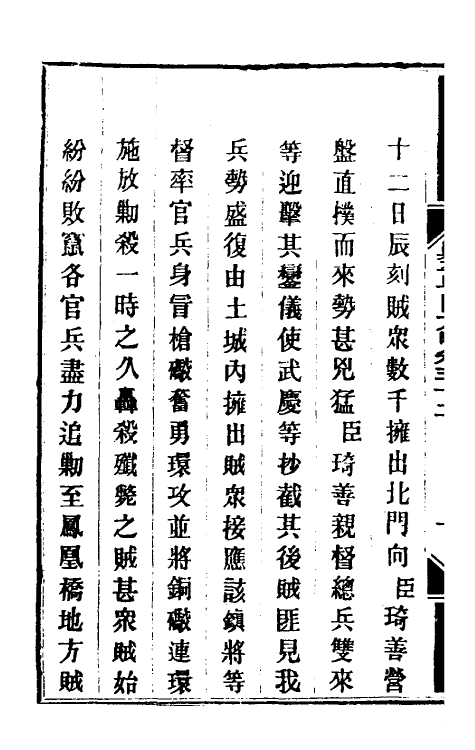 十二日辰刻賊眾數千擁出北門向臣琦善營
盤直撲而來勢甚兇猛臣琦善親督總兵雙來
等迎擊其鑾儀使武慶等抄截其後賊匪見我
兵勢盛復由土城內擁出賊眾接應該鎮將等
督率官兵身冒槍礮奮勇環攻並將銅礮連環
施放勦殺一時之久轟殺殲斃之賊甚眾賊始
紛紛敗竄各官兵盡力追勦至鳳凰橋地方賊